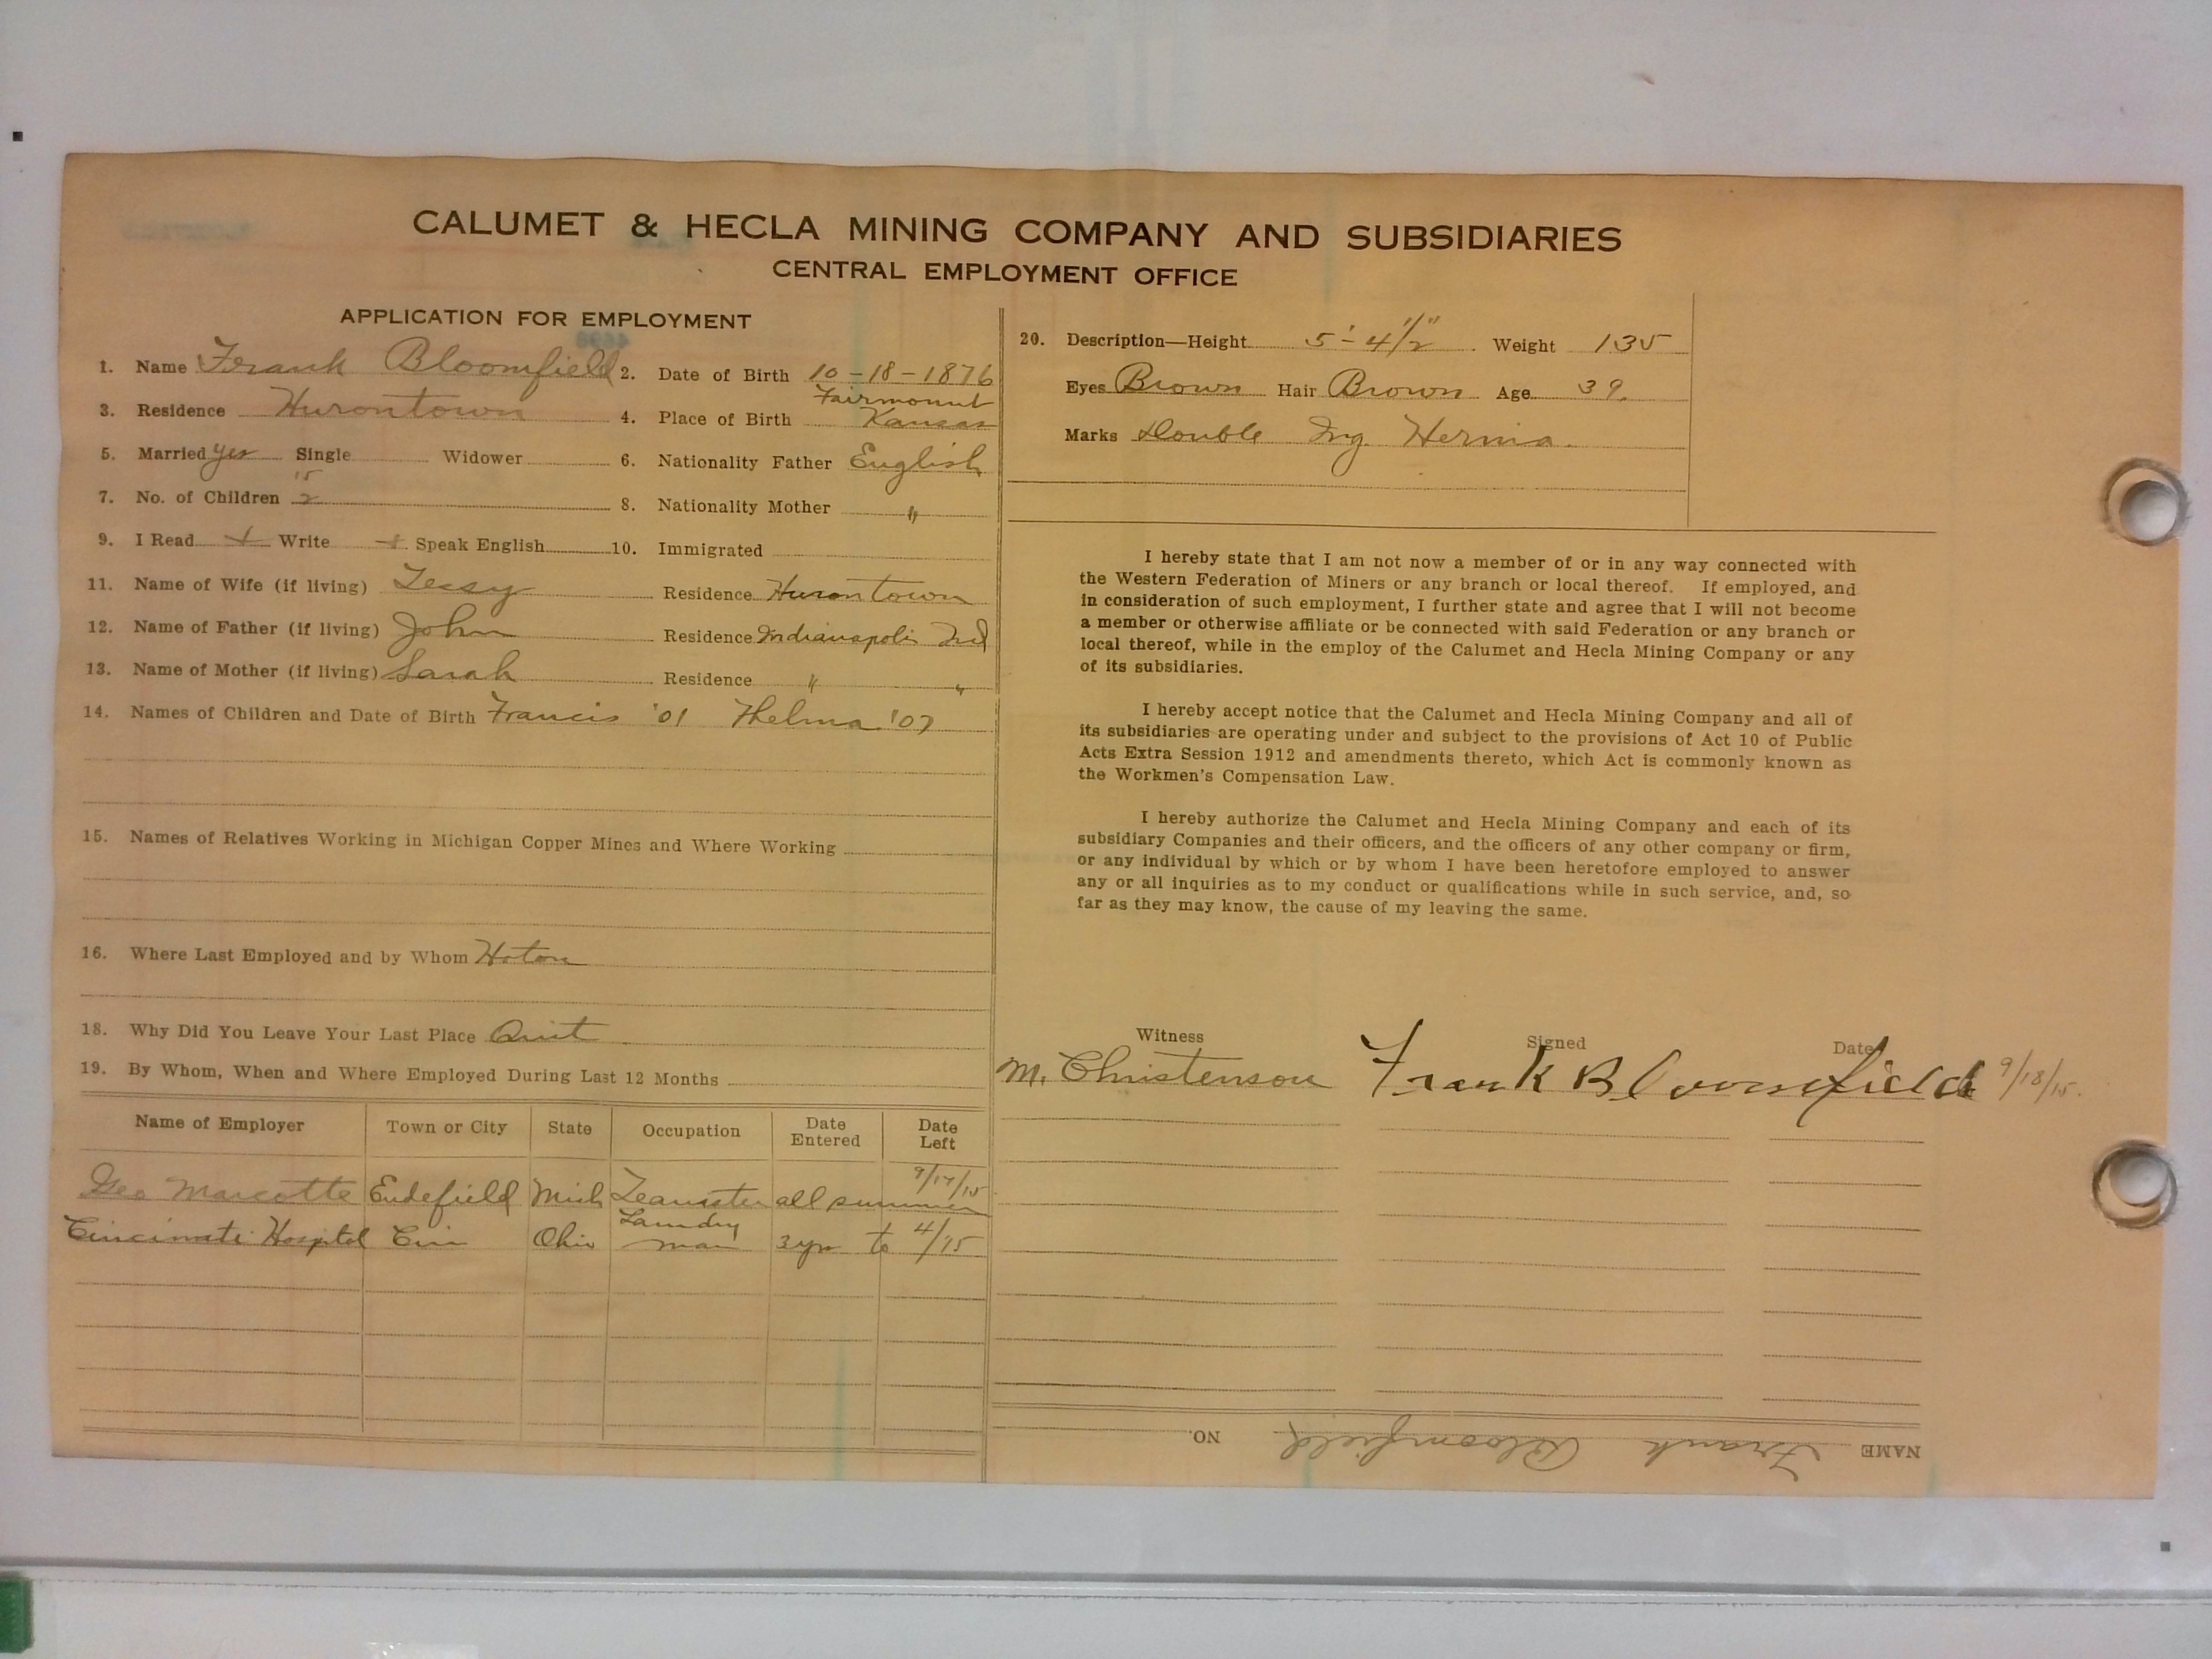 CALUMET & HECLA MINING COMPANY AND SUBSIDIARIES
CENTRAL EMPLOYMENT OFFICE
APPLICATION FOR EMPLOYMENT
1. Name Frank Bloomfield 2. Date of Birth 10-18-1876
3. Residence Hurontown 4. Place of Birth Fairmount Kansas
5. Married yes Single Widower 6. Nationality Father English
15
7. No. of Children 2 8. Nationality Mother "
9. I Read + Write + Speak English 10. Immigrated
11. Name of Wife (if living) Residence Hurontown
12. Name of Father (if living) John Residence Indianapolis Ind
13. Name of Mother (if living) Sarah Residence " "
14. Names of Children and Date of Birth Francis '01 Thelma '07
15. Names of Relatives Working in Michigan Copper Mines and Where Working
16. Where Last Employed and by Whom Hoton
18. Why Did You Leave Your Last Place Quit
19. By Whom, When and Where Employed During Last 12 Months
Name of Employer Town or City State Occupation Date Entered Date Left
Geo Marcotte Mich Teamster all summer 9/17/15
Cincinnati Hospital Cin Ohio Laundry man 3 yrs to 4/15
20. Description—Height 5'-4 1/2" Weight 135
Eyes Brown Hair Brown Age 39.
Marks Double Ing. Hernia.
I hereby state that I am not now a member of or in any way connected with
the Western Federation of Miners or any branch or local thereof. If employed, and
in consideration of such employment, I further state and agree that I will not become
a member or otherwise affiliate or be connected with said Federation or any branch or
local thereof, while in the employ of the Calumet and Hecla Mining Company or any
of its subsidiaries.
I hereby accept notice that the Calumet and Hecla Mining Company and all of
its subsidiaries are operating under and subject to the provisions of Act 10 of Public
Acts Extra Session 1912 and amendments thereto, which Act is commonly known as
the Workmen's Compensation Law.
I hereby authorize the Calumet and Hecla Mining Company and each of its
subsidiary Companies and their officers, and the officers of any other company or firm,
or any individual by which or by whom I have been heretofore employed to answer
any or all inquiries as to my conduct or qualifications while in such service, and, so
far as they may know, the cause of my leaving the same.
Witness Signed Date
M. Christenson Frank Bloomfield 9/18/15.
NAME Frank Bloomfield NO.